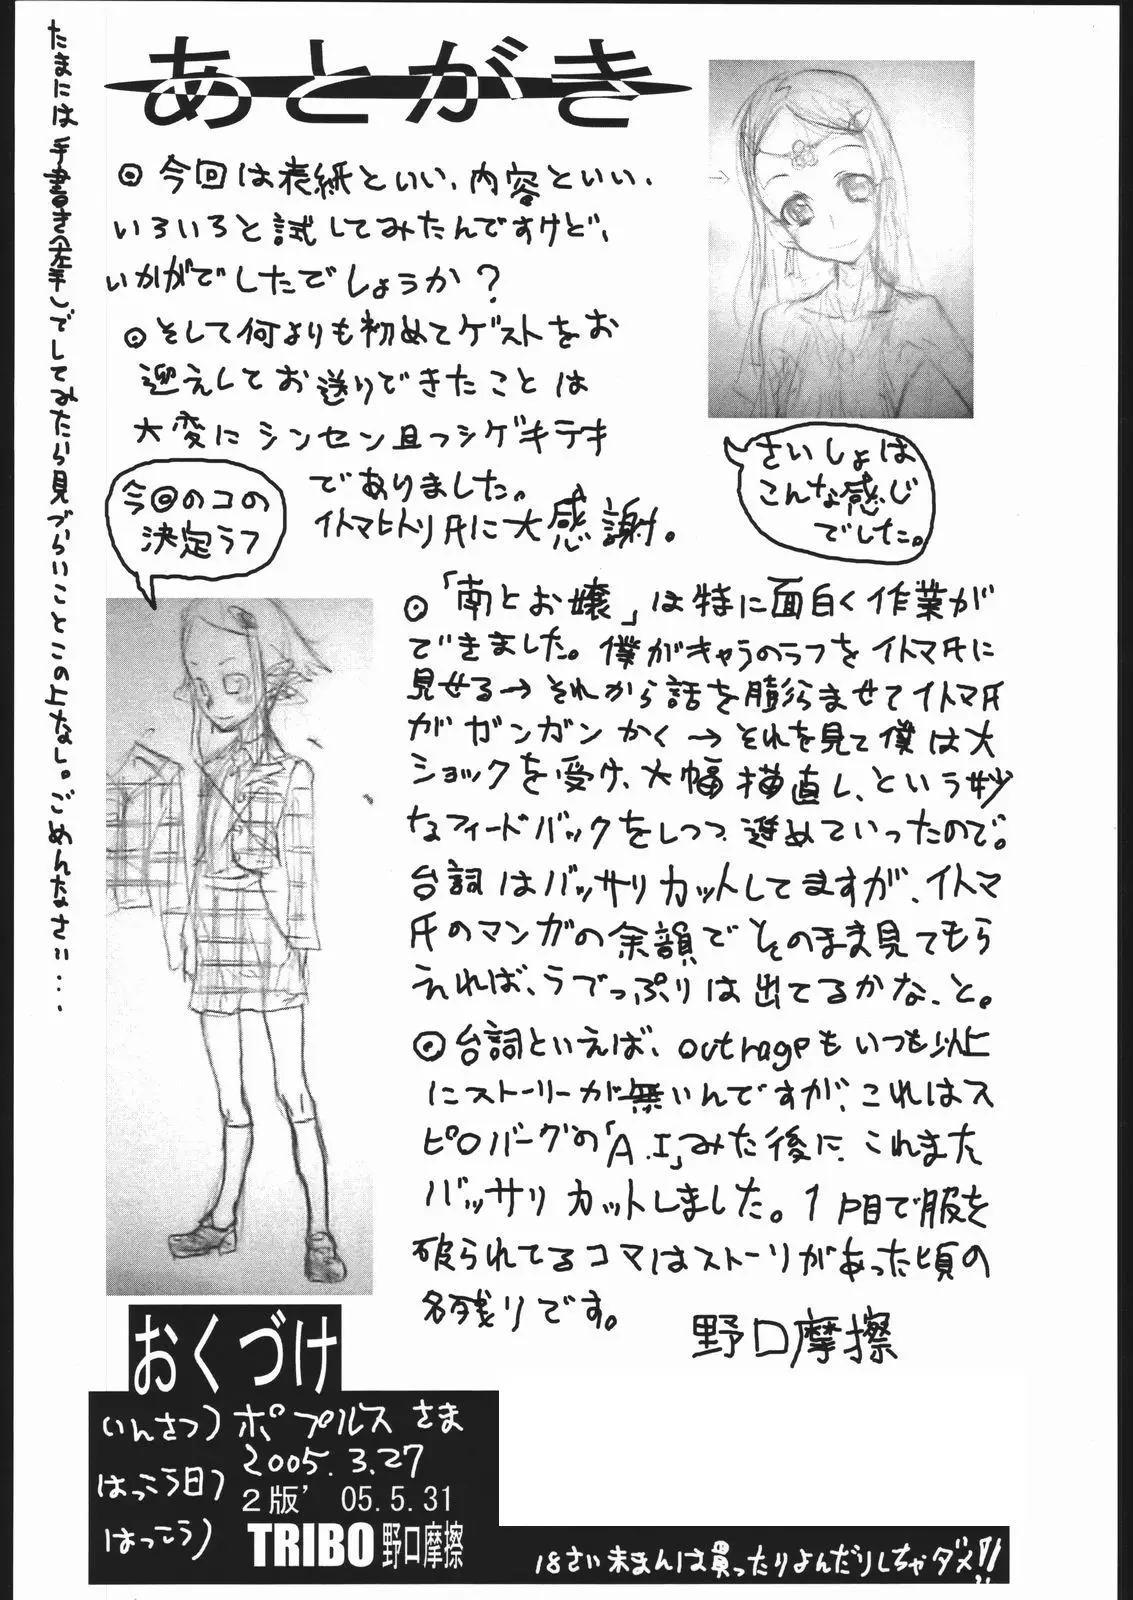 あとがき
たまには手書き(左手)でしてみたら見づらいことこの上なし。ごめんなさい...
◎今回は表紙といい、内容といい、
いろいろと試してみたんですけど、
いかがでしたでしょうか?
◎そして何よりも初めてゲストをお
迎えしてお送りできたことは
大変にシンセン且つシゲキテキ
でありました。
イトマヒトリ氏に大感謝。
さいしょは
こんな感じ
でした。
今回のコの
決定ラフ
◎「南とお嬢」は特に面白く作業が
できました。僕がキャラのラフをイトマ氏に
見せる→それから話を膨らませてイトマ氏
がガンガンかく→それを見て僕は大
ショックを受け、大幅描直し、という妙
なフィードバックをしつつ進めていったので。
台詞はバッサリカットしてますが、イトマ
氏のマンガの余韻でそのまま見てもら
えれば、らぶっぷりは出てるかな、と。
◎台詞といえば、outrageもいつも以上
にストーリーが無いんですが、これはス
ピロバーグの「A.I」みた後に、これまた
バッサリカットしました。1P目で服を
破られてるコマはストーリがあった頃の
名残りです。
野口摩擦
おくづけ
いんさつ)ポプルスさま
はっこう日)2005.3.27
2版' 05.5.31
はっこう)TRIBO 野口摩擦
18さい未まんは買ったりよんだりしちゃダメ!!